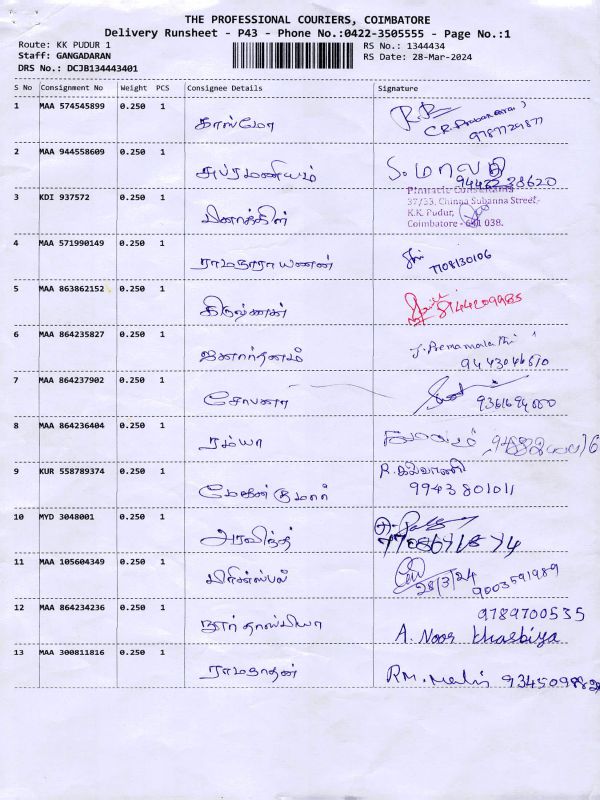 THE PROFESSIONAL COURIERS, COIMBATORE
Delivery Runsheet - P43 - Phone No.:0422-3505555 - Page No.:1
Route: KK PUDUR 1
RS No.: 1344434
Staff: GANGADARAN
RS Date: 28-Mar-2024
DRS No.: DCJB134443401
S No Consignment No Weight PCS Consignee Details Signature
1 MAA 574545899 0.250 1 காஸ்மோ
2 MAA 944558609 0.250 1 சுப்ரமணியம் S. மாலதி
3 KDI 937572 0.250 1
Pinnacle Consultants
37/33, Chinna Subanna Street-
K.K. Pudur,
Coimbatore - 641 038.
4 MAA 571990149 0.250 1 ராமநாராயணன் 7708130106
5 MAA 863862152 0.250 1 கிருஷ்ணன் 8144209985
6 MAA 864235827 0.250 1 ஜனார்தனம் J. Premamalathi
7 MAA 864237902 0.250 1 சோபனா
8 MAA 864236404 0.250 1 ரம்யா
9 KUR 558789374 0.250 1 மோகன் குமார் R. கல்யாணி
9943801011
10 MYD 3048001 0.250 1 அரவிந்த்
11 MAA 105604349 0.250 1 பிரின்ஸ்பல் 28/3/24 9003591989
12 MAA 864234236 0.250 1 நூர் தாஸ்பியா 9789700535
A. Noor Khasbiya
13 MAA 300811816 0.250 1 ராமநாதன்